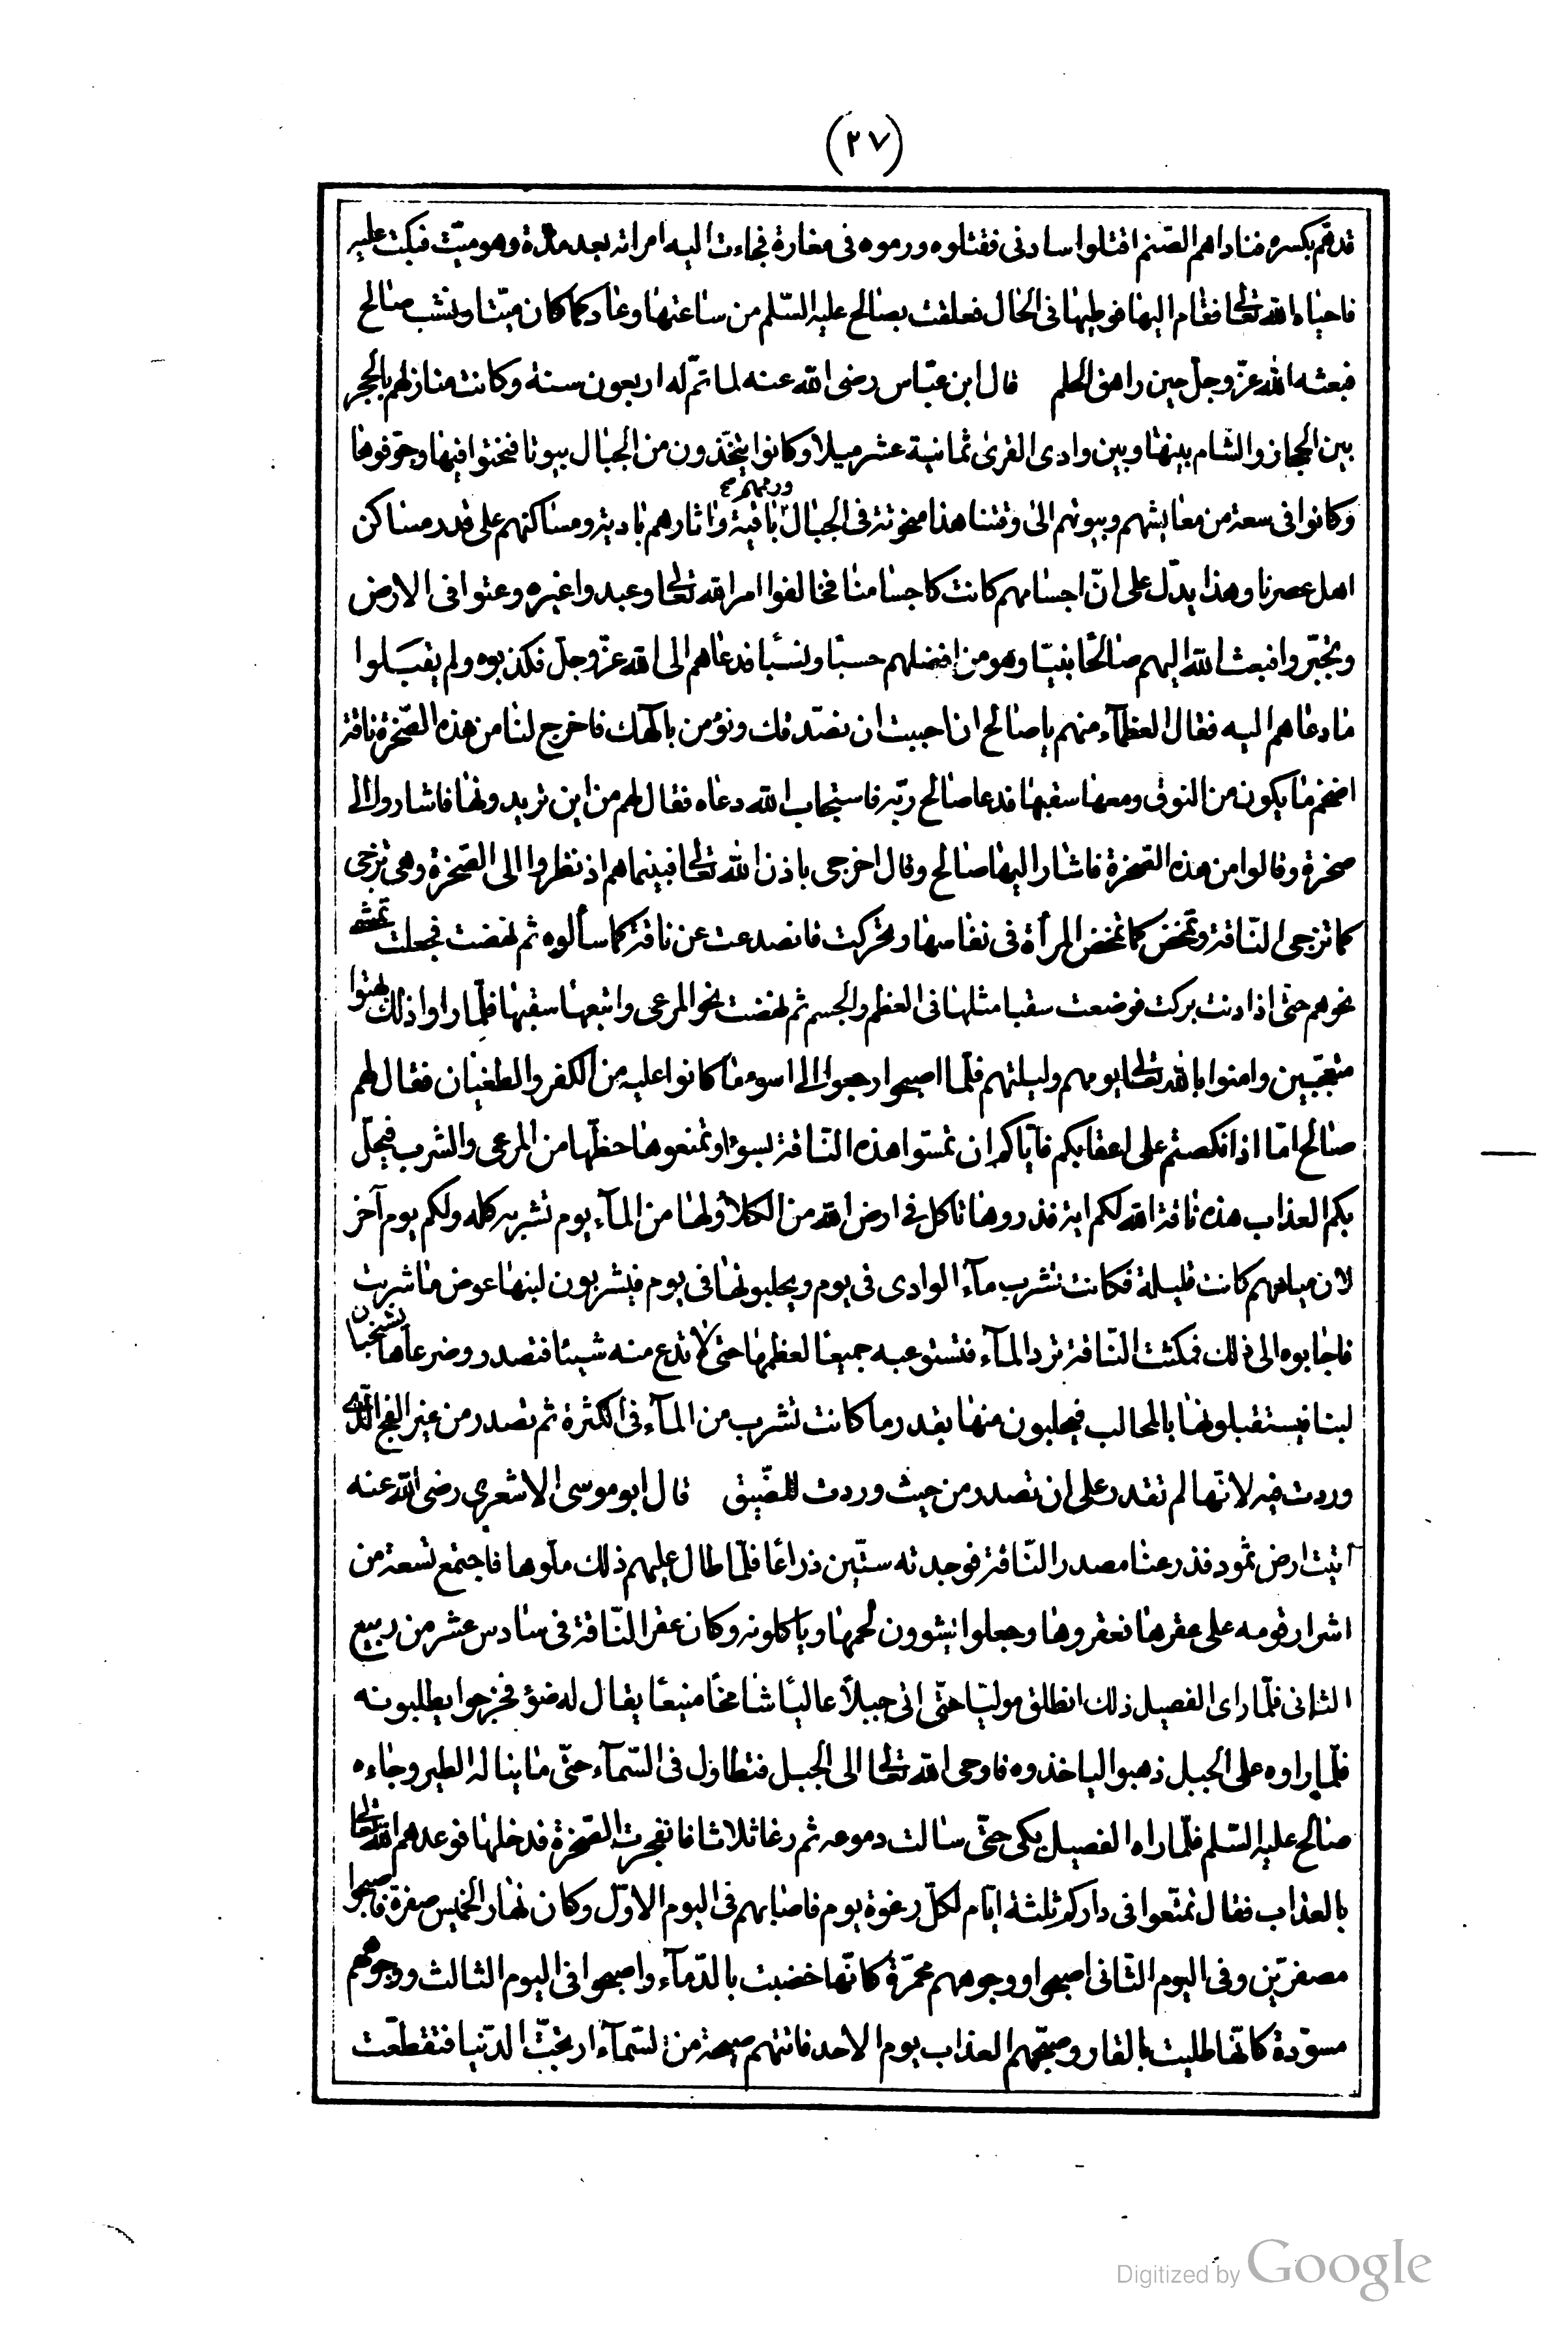 (٢٧)
قد همّ بكسره فناداهم الصّنم اقتلوا سادنى فقتلوه ورموه فى مغارة فجاءت اليه امراته بعد مدّة وهو ميّت فبكت عليه
فاحياه الله تعالى فقام اليها فوطيها فى الحال فعلقت بصالح عليه السّلم من ساعتها وعاد كما كان ميّتا ونشب صالح
فبعثه الله عزّ وجلّ حين راهق الحلم قال ابن عبّاس رضى الله عنه لما تمّ له اربعون سنة وكانت منازلهم بالحجر
بين الحجاز والشّام بينها وبين وادى القرى ثمانية عشر ميلا وكانوا يتخّذون من الجبال بيوتا فنحتوا فيها وجوّفوها
وكانوا فى سعة من معايشهم وبيوتهم الى وقتنا هذا منحوتة فى الجبال ورممهم باقية واثارهم بادية ومساكنهم على قدر مساكن
اهل عصرنا وهذا يدّل على انّ اجسامهم كانت كاجسامنا فخالفوا امر الله تعالى وعبدوا غيره وعتوا فى الارض
وتجبّروا فبعث الله اليهم صالحًا نبيّا وهو من افضلهم حسبًا ونسبًا فدعاهم الى الله عزّ وجلّ فكذبوه ولم يقبلوا
ما دعاهم اليه فقال العظمآء منهم يا صالح ان احببت ان نصّدقك ونؤمن بالهك فاخرج لنا من هذه الصّخرة ناقة
اضخم ما يكون من النوق ومعها سقبها فدعا صالح ربّه فاستجاب الله دعاه فقال لهم من اين تريدونها فاشاروا الى
صخرة وقالوا من هذه الصّخرة فاشار اليها صالح وقال اخرجى باذن الله تعالى فبينما هم اذ نظروا الى الصّخرة وهى تزجى
كما تزجى النّاقة وتمخض كما تمخض المرأة فى نفاسها وتحركت فانصدعت عن ناقة كما سألوه ثم نهضت فجعلت تمشى
نحوهم حتى اذا دنت بركت فوضعت سقبا مثلها فى العظم والجسم ثم نهضت نحو المرعى واتبعها سقبها فلمّا راوا ذلك بهتوا
متعجّبين وامنوا بالله تعالى يومهم وليلتهم فلمّا اصبحوا رجعوا الى اسوء ما كانوا عليه من الكفر والطغيان فقال لهم
صالح امّا اذا نكصتم على اعقابكم فايّاكم ان تمسّوا هذه النّاقة بسوء او تمنعوها حظّها من المرعى والشرب فيحلّ
بكم العذاب هذه ناقة الله لكم اية فذروها تاكل فى ارض الله من الكلأ ولها من المآء يوم تشربه كله ولكم يوم آخر
لان مياههم كانت قليلة فكانت تشرب مآء الوادى فى يوم ويحلبونها فى يوم فيشربون لبنها عوض ما شربت
فاجابوه الى ذلك فمكثت النّاقة ترد المآء فتستوعبه جميعًا لعظمها حتى لا تدع منه شيئا فتصدر وضرعاها يشخبان
لبنا فيستقبلونها بالمحالب فيحلبون منها بقدر ما كانت تشرب من المآء فى الكثرة ثم تصدر من غير الفج الّذى
وردت فيه لانّها لم تقدر على ان تصدر من حيث وردت للضّيق قال ابو موسى الاشعرى رضى الله عنه
أتيت ارض ثمود فذرعنا مصدر النّاقة فوجدته ستّين ذراعًا فلمّا طال عليهم ذلك ملّوها فاجتمع تسعة من
اشرار قومه على عقرها فعقروها وجعلوا يشوون لحمها وياكلونه وكان عقر النّاقة فى سادس عشر من ربيع
الثانى فلمّا راى الفصيل ذلك انطلق موليّا حتّى اتى جبلاً عاليًا شامخًا منيعًا يقال له ضوؤ فخرجوا يطلبونه
فلمّا راوه على الجبل ذهبوا لياخذوه فاوحى الله تعالى الى الجبل فتطاول فى السّمآء حتّى ما يناله الطير وجاءه
صالح عليه السّلم فلمّا راه الفصيل بكى حتّى سالت دموعه ثم رغا ثلاثا فانفجرت الصّخرة فدخلها فوعدهم الله تعالى
بالعذاب فقال تمتّعوا فى داركم ثلثة ايّام لكلّ رغوة يوم فاصابهم فى اليوم الاوّل وكان نهار الخميس صفرة فاصبحوا
مصفرّين وفى اليوم الثّانى اصبحوا ووجوههم محمرّة كانّها خضبت بالدّمآء واصبحوا فى اليوم الثالث ووجوههم
مسوّدة كانّها طليت بالقار وصبّحهم العذاب يوم الاحد فاتتهم صيحة من السّمآء ارتجّت الدّنيا فتقطعّت
Digitized by Google